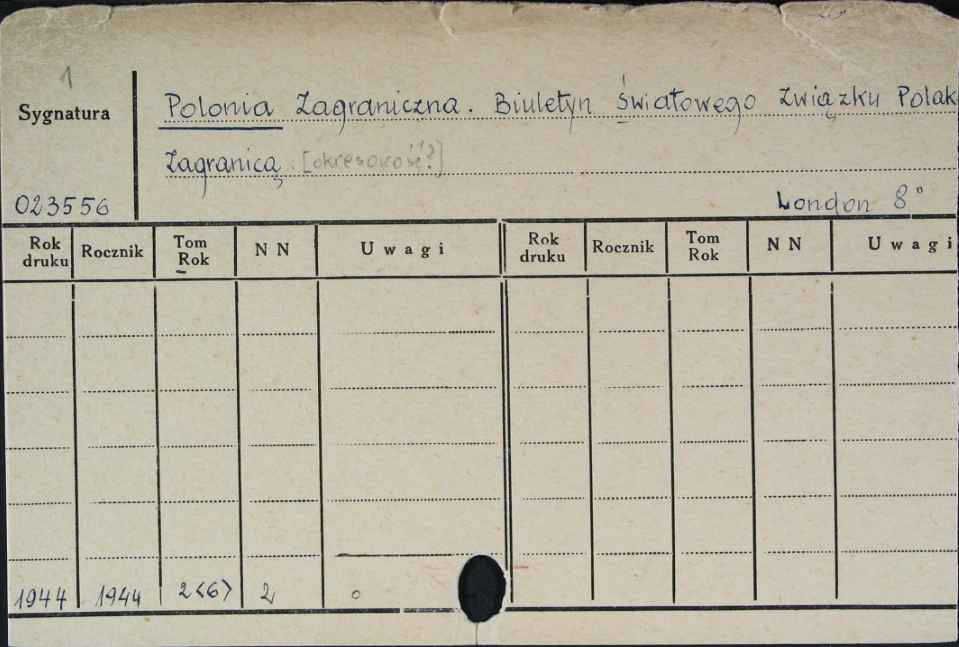 1
Sygnatura
Polonia Zagraniczna. Biuletyn Światowego Związku Polak
Zagranicą. [okresowość?]
023556
London 8°
Rok druku Rocznik Tom Rok NN Uwagi Rok druku Rocznik Tom Rok NN Uwagi
1944 1944 2<6> 2 o